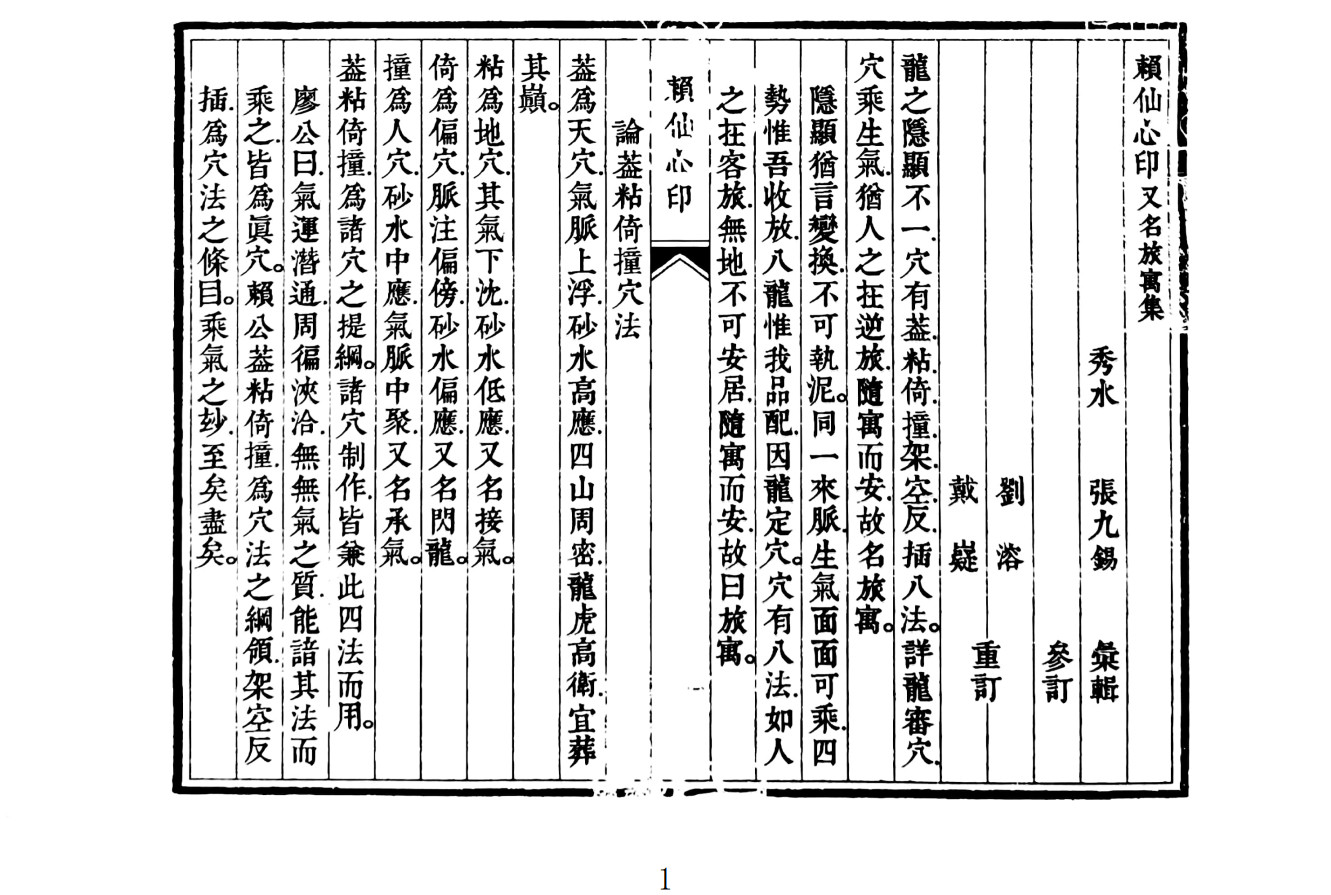 賴仙心印又名旅寓集
秀水 張九錫 彙輯
參訂
劉溶
戴嶷 重訂
龍之隱顯不一.穴有葢.粘.倚.撞.架.空.反.插八法。詳龍審穴.
穴乘生氣.猶人之在逆旅.隨寓而安.故名旅寓。
隱顯猶言變換.不可執泥。同一來脈.生氣面面可乘.四
勢惟吾收放.八龍惟我品配.因龍定穴。穴有八法.如人
之在客旅.無地不可安居.隨寓而安.故曰旅寓。
賴仙心印
論葢粘倚撞穴法
葢爲天穴.氣脈上浮.砂水高應.四山周密.龍虎高衛.宜葬
其巔。
粘爲地穴.其氣下沈.砂水低應.又名接氣。
倚爲偏穴.脈注偏傍.砂水偏應.又名閃龍。
撞爲人穴.砂水中應.氣脈中聚.又名承氣。
葢粘倚撞.爲諸穴之提綱。諸穴制作.皆兼此四法而用。
廖公曰.氣運潛通.周徧浹洽.無無氣之質.能諳其法而
乘之.皆爲眞穴。賴公葢粘倚撞.爲穴法之綱領.架空反
插.爲穴法之條目。乘氣之玅.至矣盡矣。
1